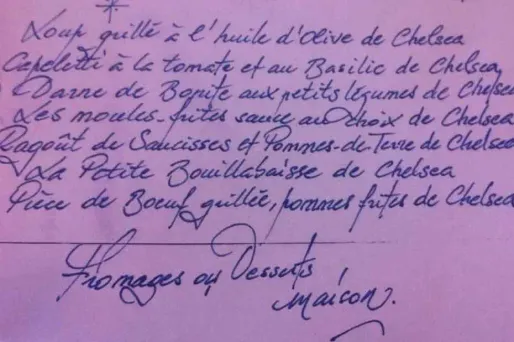 Loup grillé à l'huile d'Olive de Chelsea
Capeletti à la tomate et au Basilic de Chelsea
Darne de Bonite aux petits légumes de Chelsea
Les moules-frites sauce au choix de Chelsea
Ragoût de Saucisses et Pommes-de Terre de Chelsea
La Petite Bouillabaisse de Chelsea
Pièce de Boeuf grillée, pommes frites de Chelsea
Fromages ou Desserts
maison.